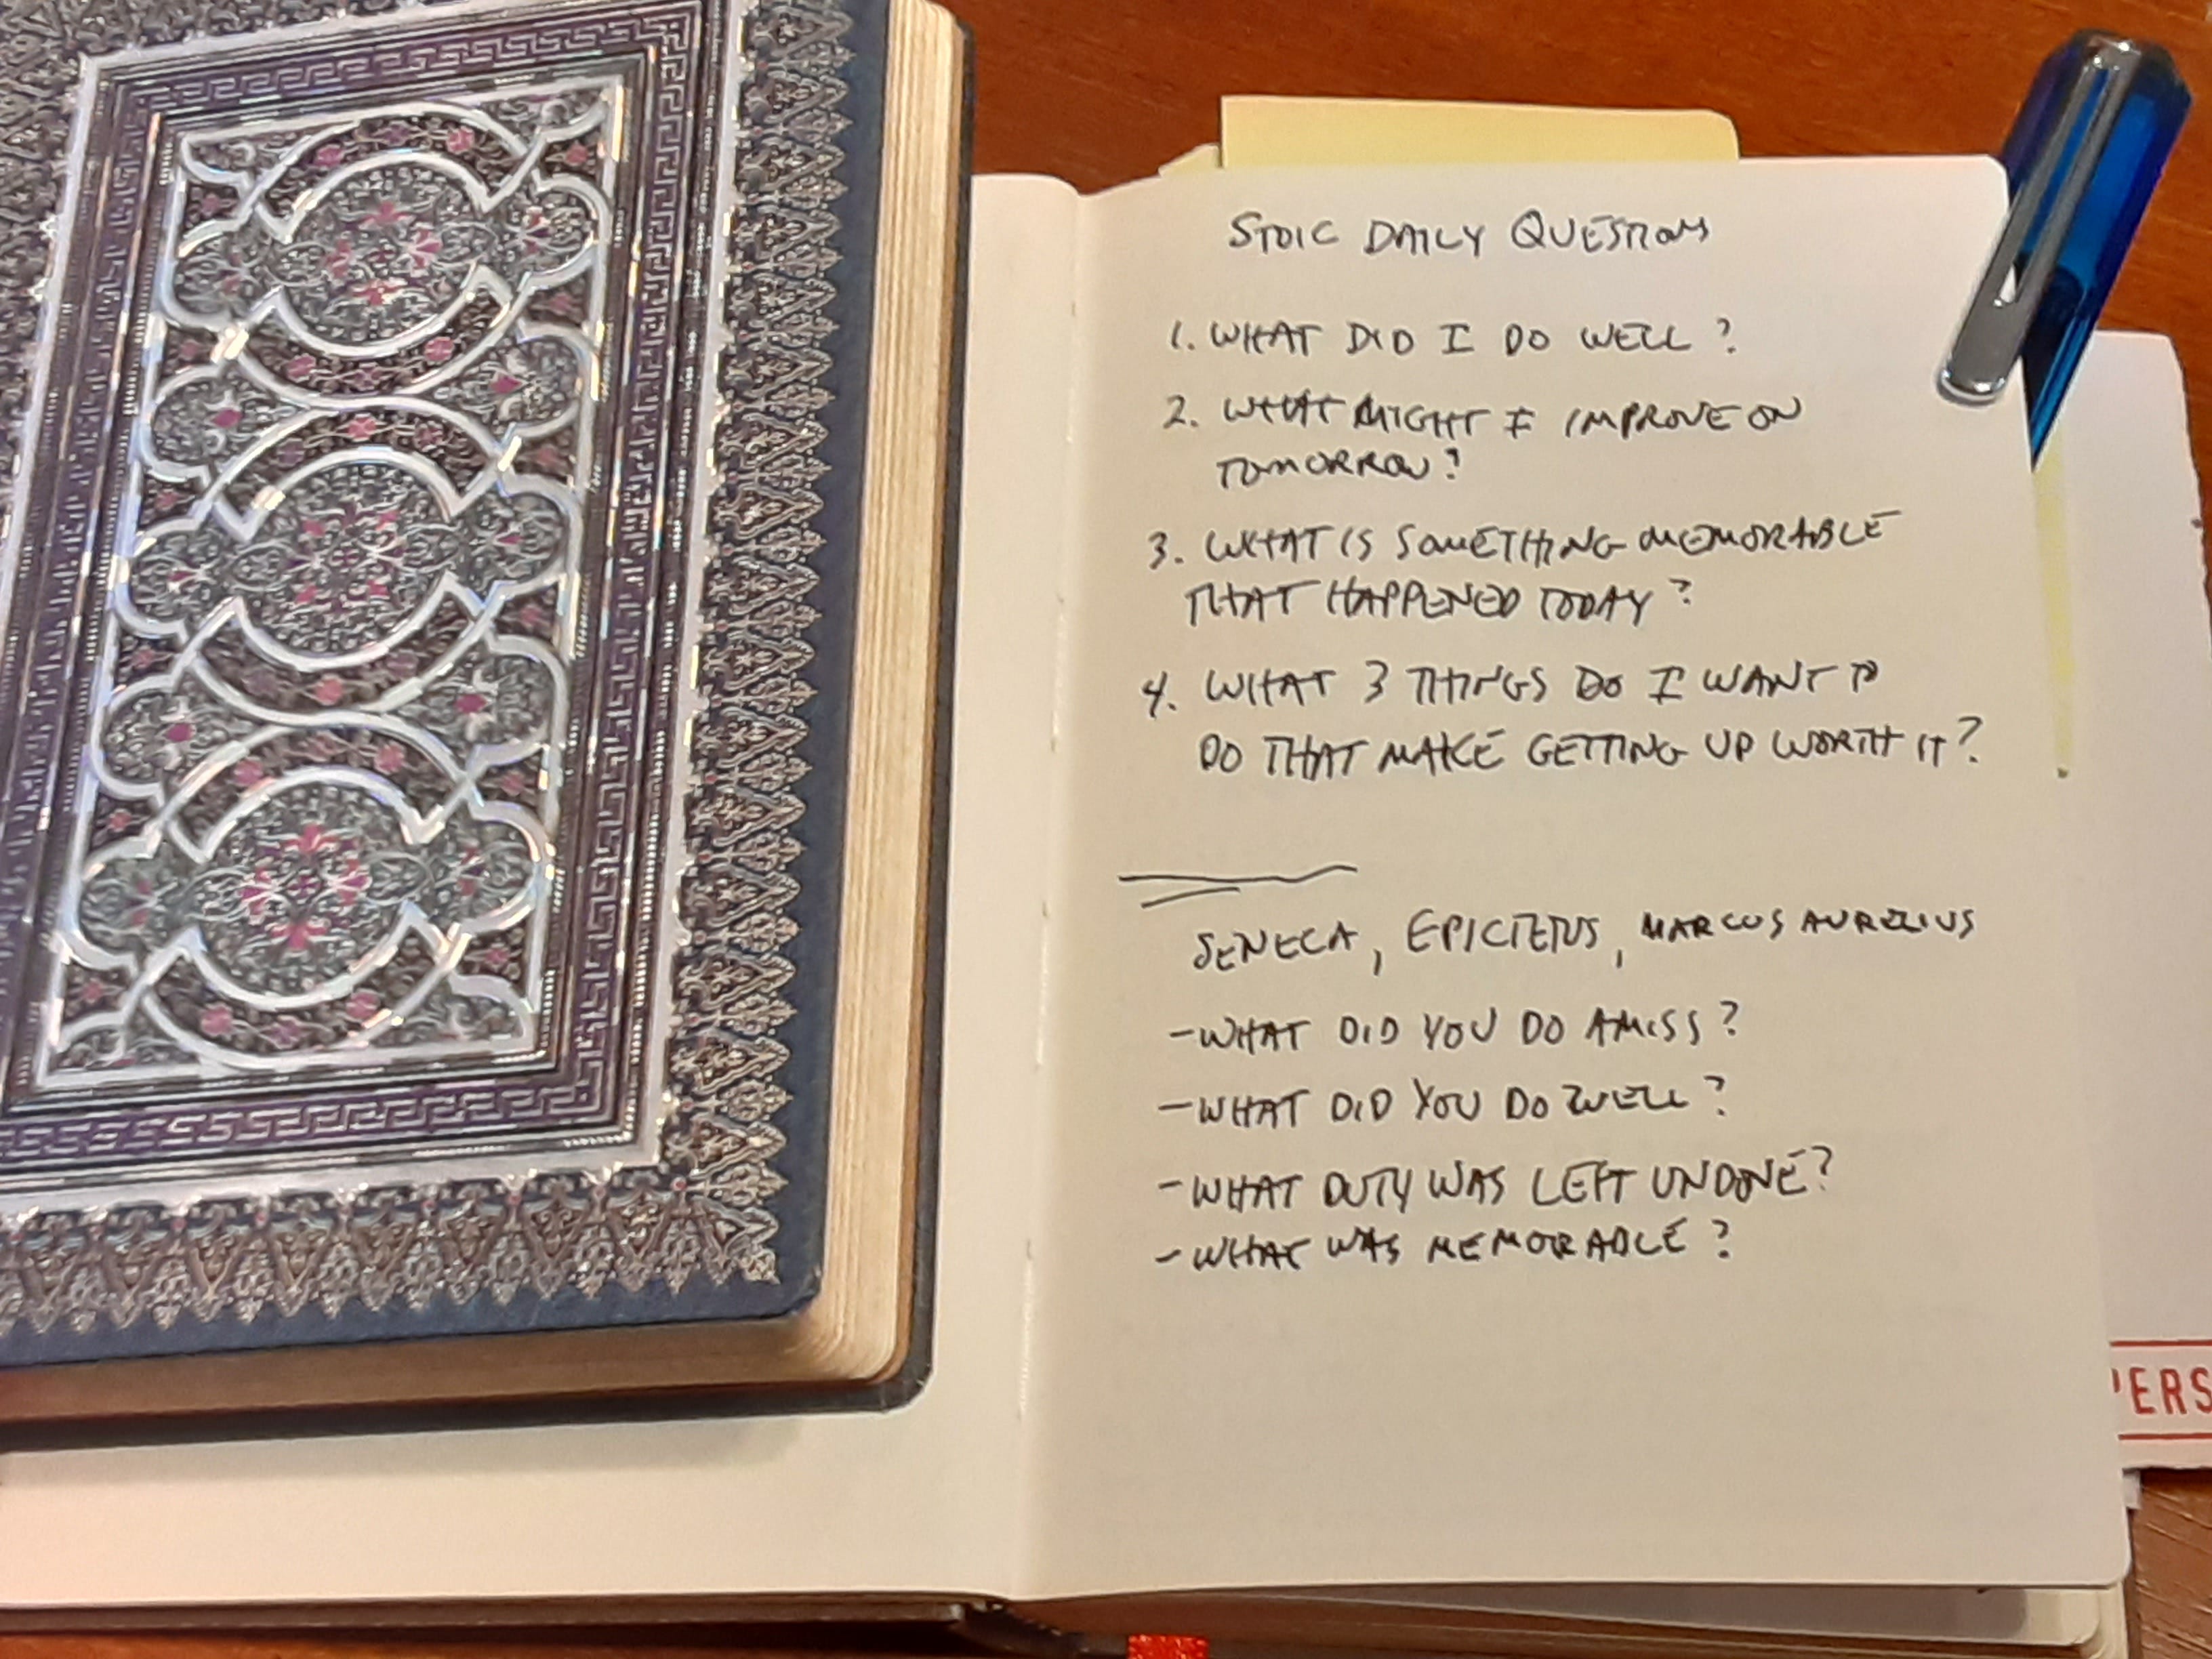 STOIC DAILY QUESTIONS
1. WHAT DID I DO WELL?
2. WHAT MIGHT I IMPROVE ON
TOMORROW?
3. WHAT IS SOMETHING MEMORABLE
THAT HAPPENED TODAY?
4. WHAT 3 THINGS DO I WANT TO
DO THAT MAKE GETTING UP WORTH IT?
SENECA, EPICTETUS, MARCUS AURELIUS
- WHAT DID YOU DO AMISS?
- WHAT DID YOU DO WELL?
- WHAT DUTY WAS LEFT UNDONE?
- WHAT WAS MEMORABLE?
PERS